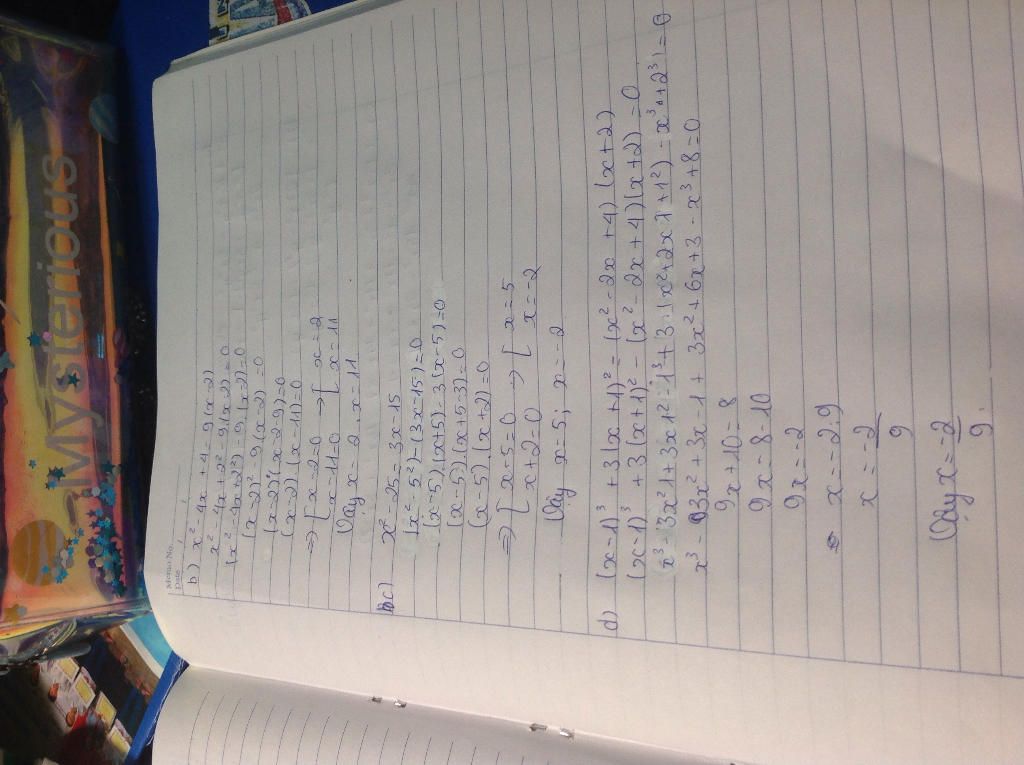 Mysterious
Memo No.
Date
b) x² - 4x + 4 = 9(x-2)
x² - 4x + 2² - 9(x-2) = 0
(x² - 4x + 2²) - 9(x-2) = 0
(x-2)² - 9(x-2) = 0
(x-2)(x-2-9) = 0
(x-2)(x-11) = 0
⇒ [ x-2=0 → [ x=2
[ x-11=0 [ x=11
Vậy x=2, x=11
c) x² - 25 = 3x - 15
(x² - 5²) - (3x-15) = 0
(x-5)(x+5) - 3(x-5) = 0
(x-5)(x+5-3) = 0
(x-5)(x+2) = 0
⇒ [ x-5=0 → [ x=5
[ x+2=0 [ x=-2
Vậy x=5; x=-2
d) (x-1)³ + 3(x+1)² = (x² - 2x + 4)(x+2)
(x-1)³ + 3(x+1)² - (x² - 2x + 4)(x+2) = 0
(x³ - 3x²1 + 3x1² - 1³ + 3.(x² + 2x1 + 1²) - x³ + 2³) = 0
x³ - 3x² + 3x - 1 + 3x² + 6x + 3 - x³ + 8 = 0
9x + 10 = 8
9x = 8 - 10
9x = -2
x = -2 : 9
x = -2/9
Vậy x = -2/9.